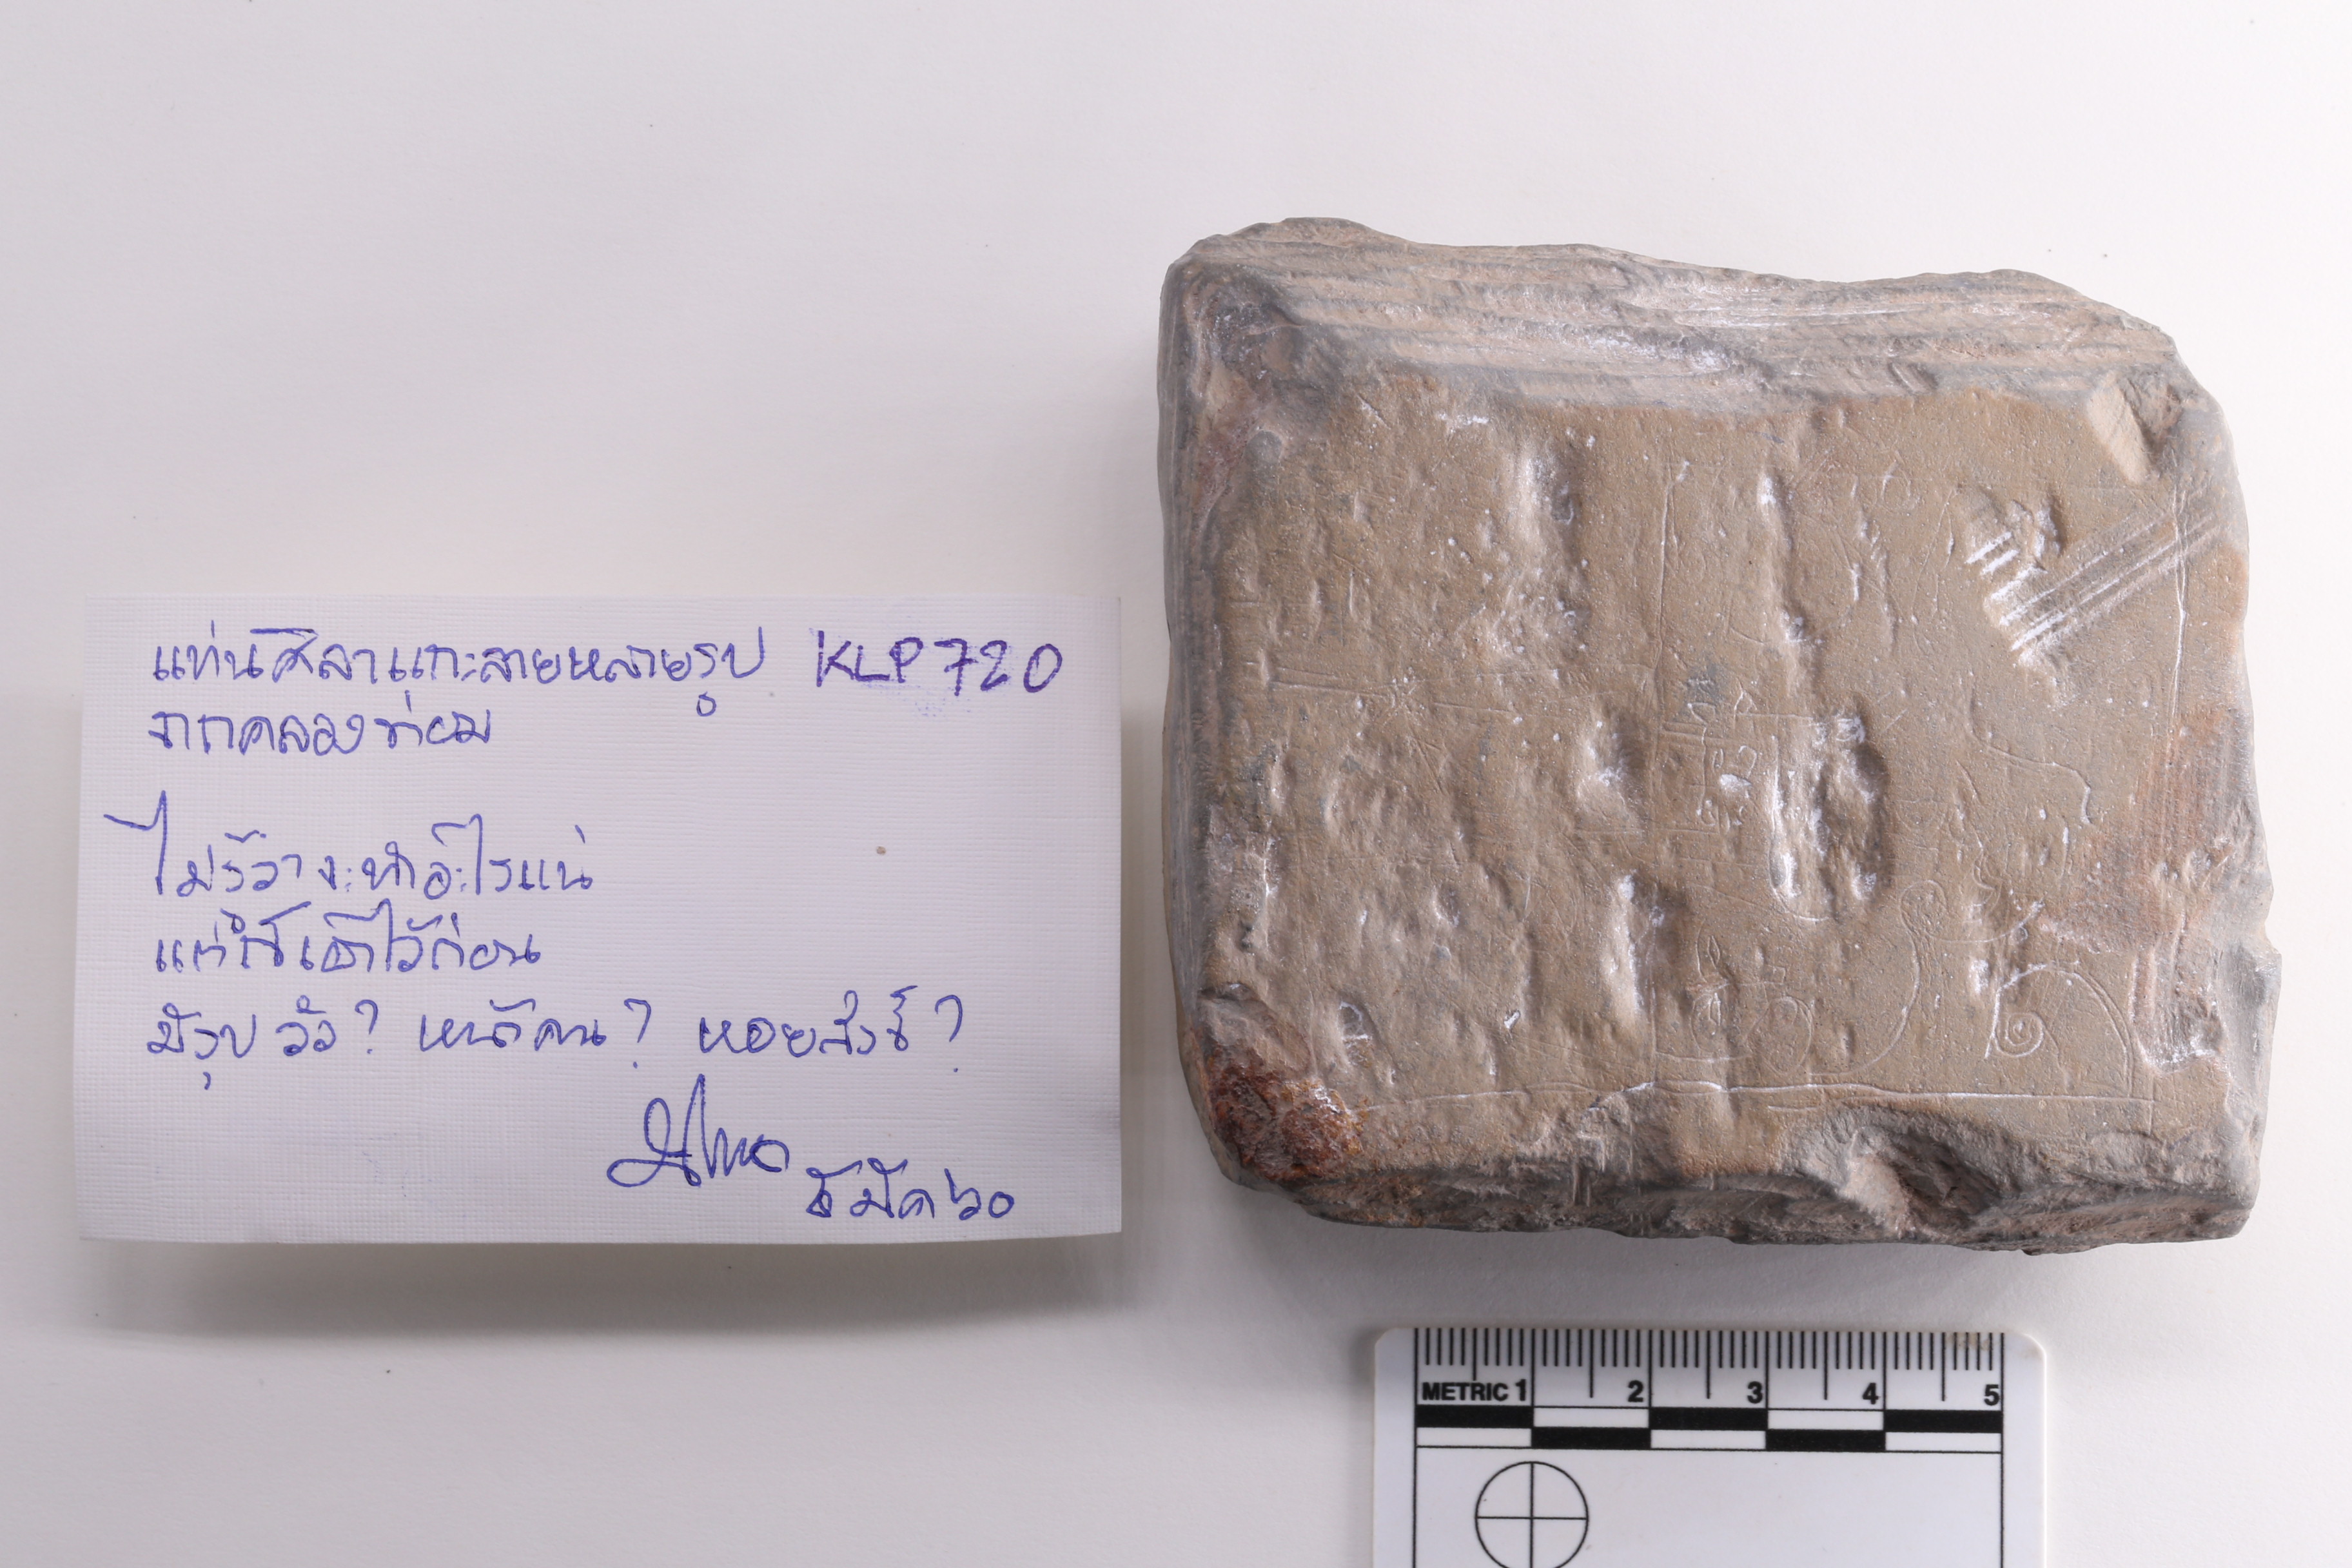 แท่นศิลาแกะลายหลายรูป KLP720
จากคลองท่อม
ไม่รู้ว่าจะทำอะไรแน่
แต่ก็เอาไว้ก่อน
มีรูปวัว? หน้าคน? หอยสังข์?
มีค ๖๐
METRIC 1 2 3 4 5